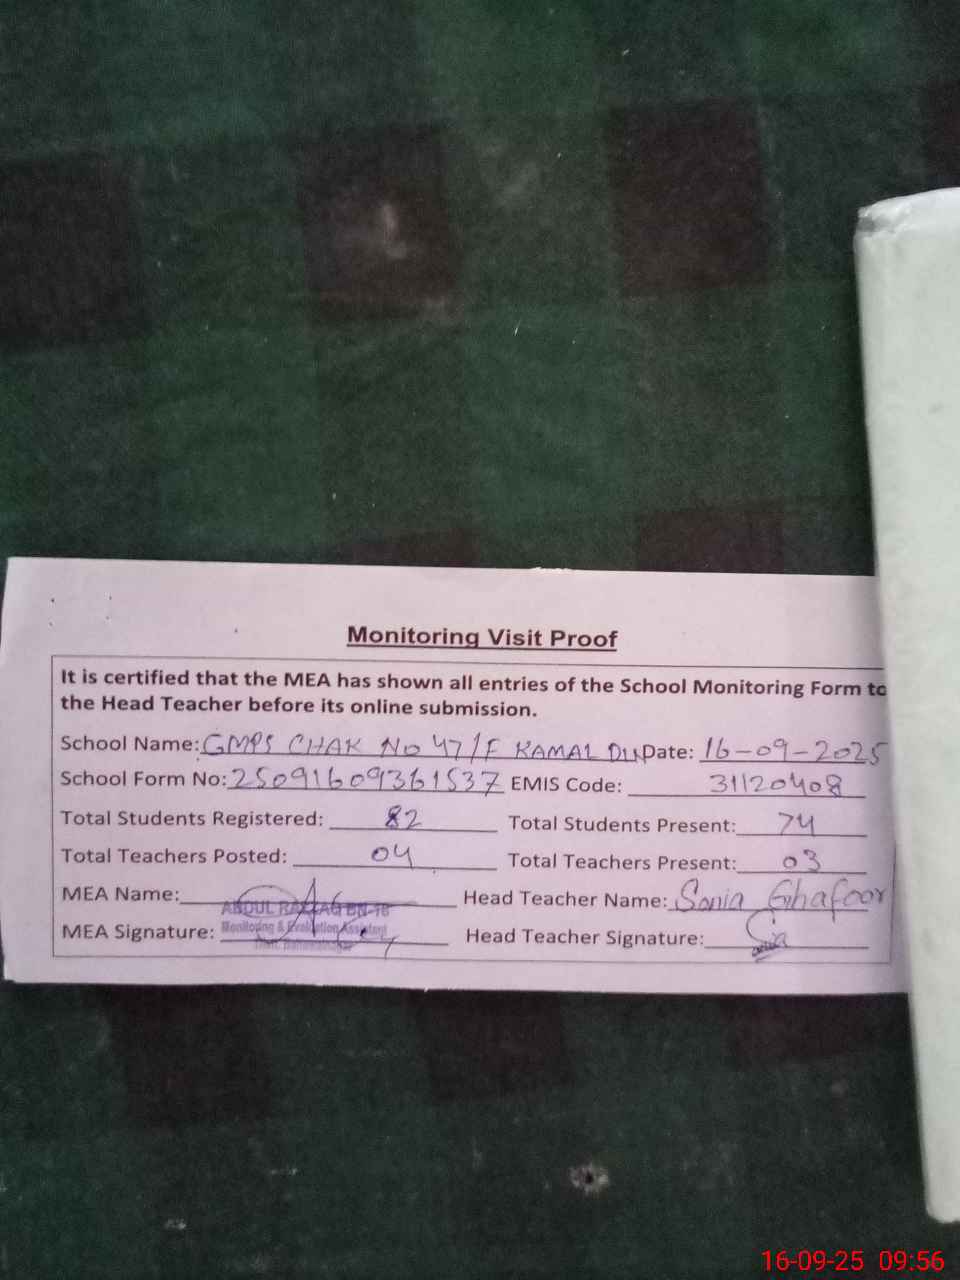 Monitoring Visit Proof
It is certified that the MEA has shown all entries of the School Monitoring Form to
the Head Teacher before its online submission.
School Name: GMPS CHAK No 47/F KAMAL DIN Date: 16-09-2025
School Form No: 25091609361537 EMIS Code: 31120408
Total Students Registered: 82 Total Students Present: 74
Total Teachers Posted: 04 Total Teachers Present: 03
MEA Name: Head Teacher Name: Sonia Ghafoor
ABDUL RAZZAQ BN-16
MEA Signature: Monitoring & Evaluation Assistant Head Teacher Signature:
16-09-25 09:56